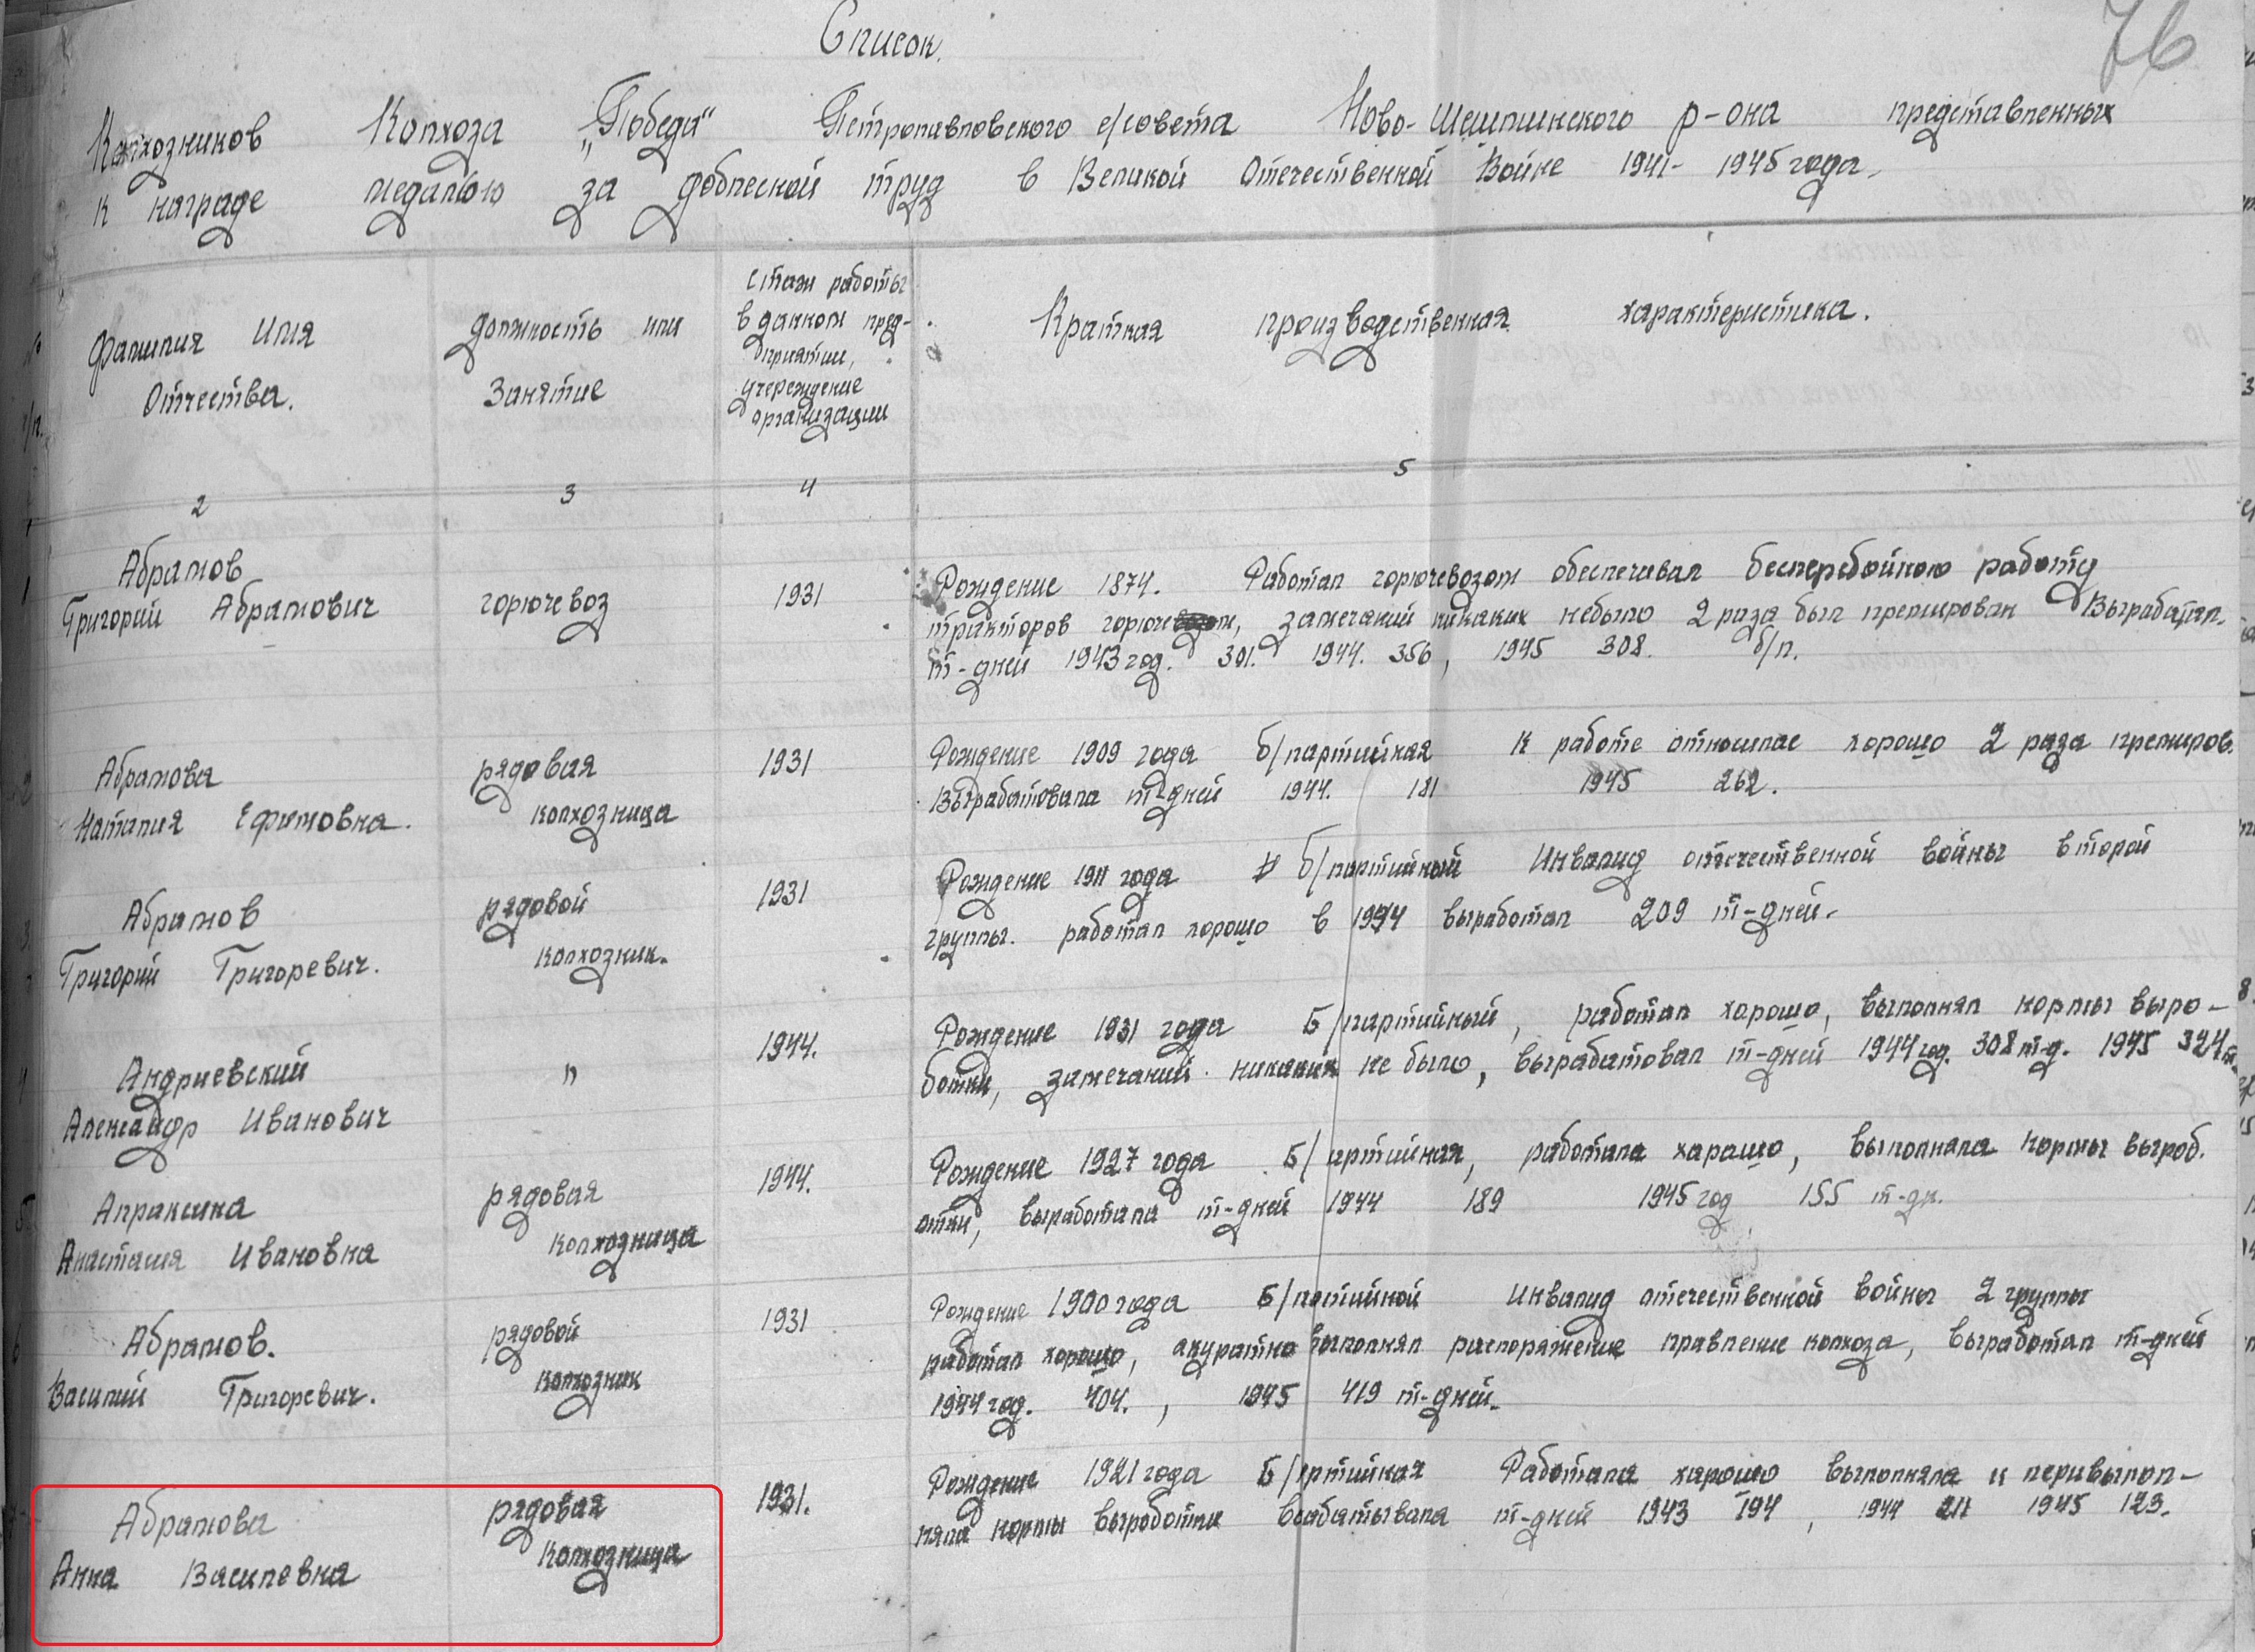 76
Список.
Колхозников Колхоза „Победа“ Петропавловского с/совета Ново-Шешминского р-она представленных
к награде медалью за доблеской труд в Великой Отечественной Войне 1941- 1945 года.
№ п/п.
Фамилия Имя
Отчества.
должность или
Занятие
Стаж работы
в данном пред-
приятии,
учереждение
организации
Краткая производственная характеристика.
2 3 4 5
1 Абрамов
Григорий Абрамович
горючевоз
1931
Рождение 1874. Работал горючевозом обеспечивал бесперебойною работу
тракторов горючевозом, замечаний никаких небыло 2 раза был премирован Выработал.
т-дней 1943 год. 301. 1944. 356, 1945 308. б/п.
2 Абрамова
Наталия Ефимовна.
рядовая
колхозница
1931
Рождение 1909 года б/партийная К работе отношлас хорошо 2 раза премиров.
Выработовала т-дней 1944. 181 1945 262.
3 Абрамов
Григорий Григоревич.
рядовой
колхозник.
1931
Рождение 1911 года б/партийный Инвалид отечественной войны второй
группы. работал хорошо в 1944 выработал 209 т-дней.
4 Андриевский
Александр Иванович
"
1944.
Рождение 1931 года Б/партийный, работал хорошо, выполнял нормы выро-
ботки, замечаний никаких не было, вырабатовал т-дней 1944 год. 308 т-д. 1945 324 т.
5 Апраксина
Анастасия Ивановна
рядовая
колхозница
1944.
Рождение 1927 года Б/артийная, работала харашо, выполняла нормы выроб.
отки, выработала т-дней 1944 189 1945 год 155 т-дн.
6 Абрамов.
Василий Григоревич.
рядовой
колхозник
1931
Рождение 1900 года Б/потийной Инвалид отечественной войны 2 группы
работал хорошо, акуратно выполнял распоряжение правление колхоза, выработал т-дней
1944 год. 404. , 1945 419 т-дней.
Абрамова
Анна Василевна
рядовая
колхозница
1931.
Рождение 1921 года Б/ртийная Работала харошо выполняла и перивыпол-
няла нормы выроботки т-дней 1943 194, 1944 1945 123.